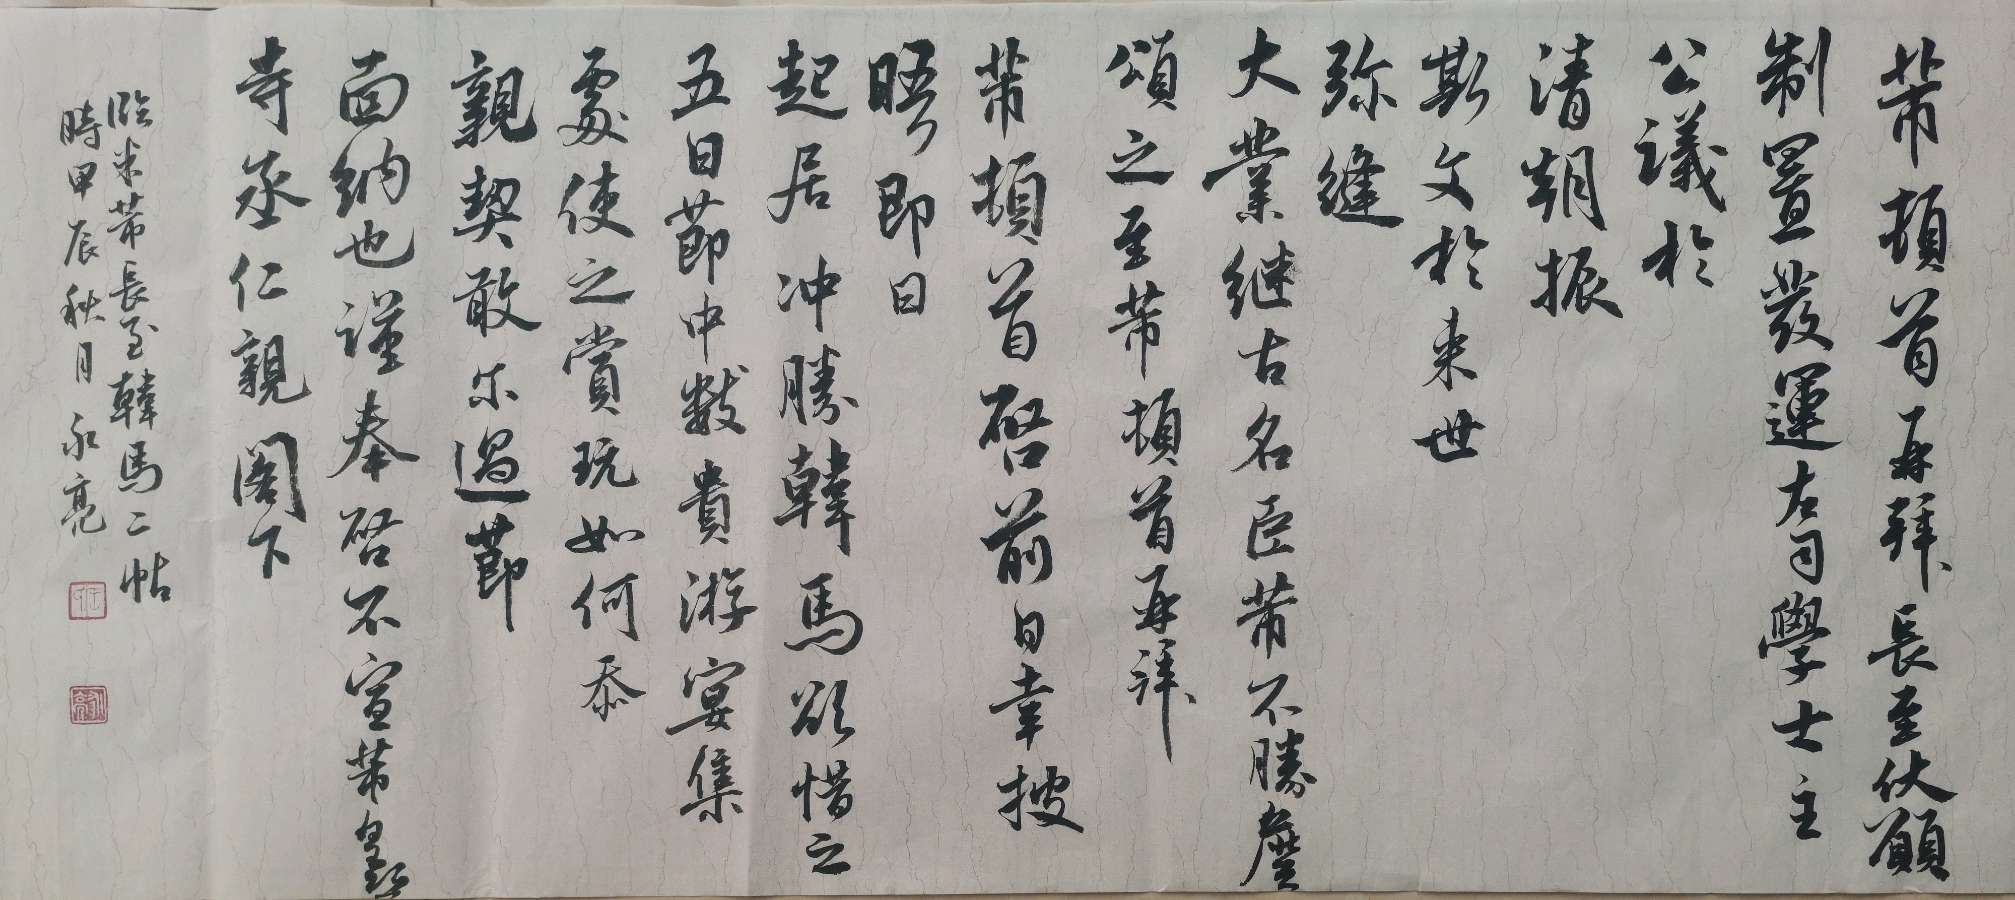 芾頓首再拜長至伏願
制置發運左司學士主
公議於
清朝振
斯文於来世
弥縫
大業继古名臣芾不勝詹
頌之至芾頓首再拜
芾頓首啓前日幸披
晤即日
起居冲勝韓馬欲惜之
五日節中数貴游宴集
處使之賞玩如何忝
親契敢尔過節
面納也謹奉啓不宣芾皇恐
寺丞仁親閣下
臨米芾長至韓馬二帖
時甲辰秋月永亮